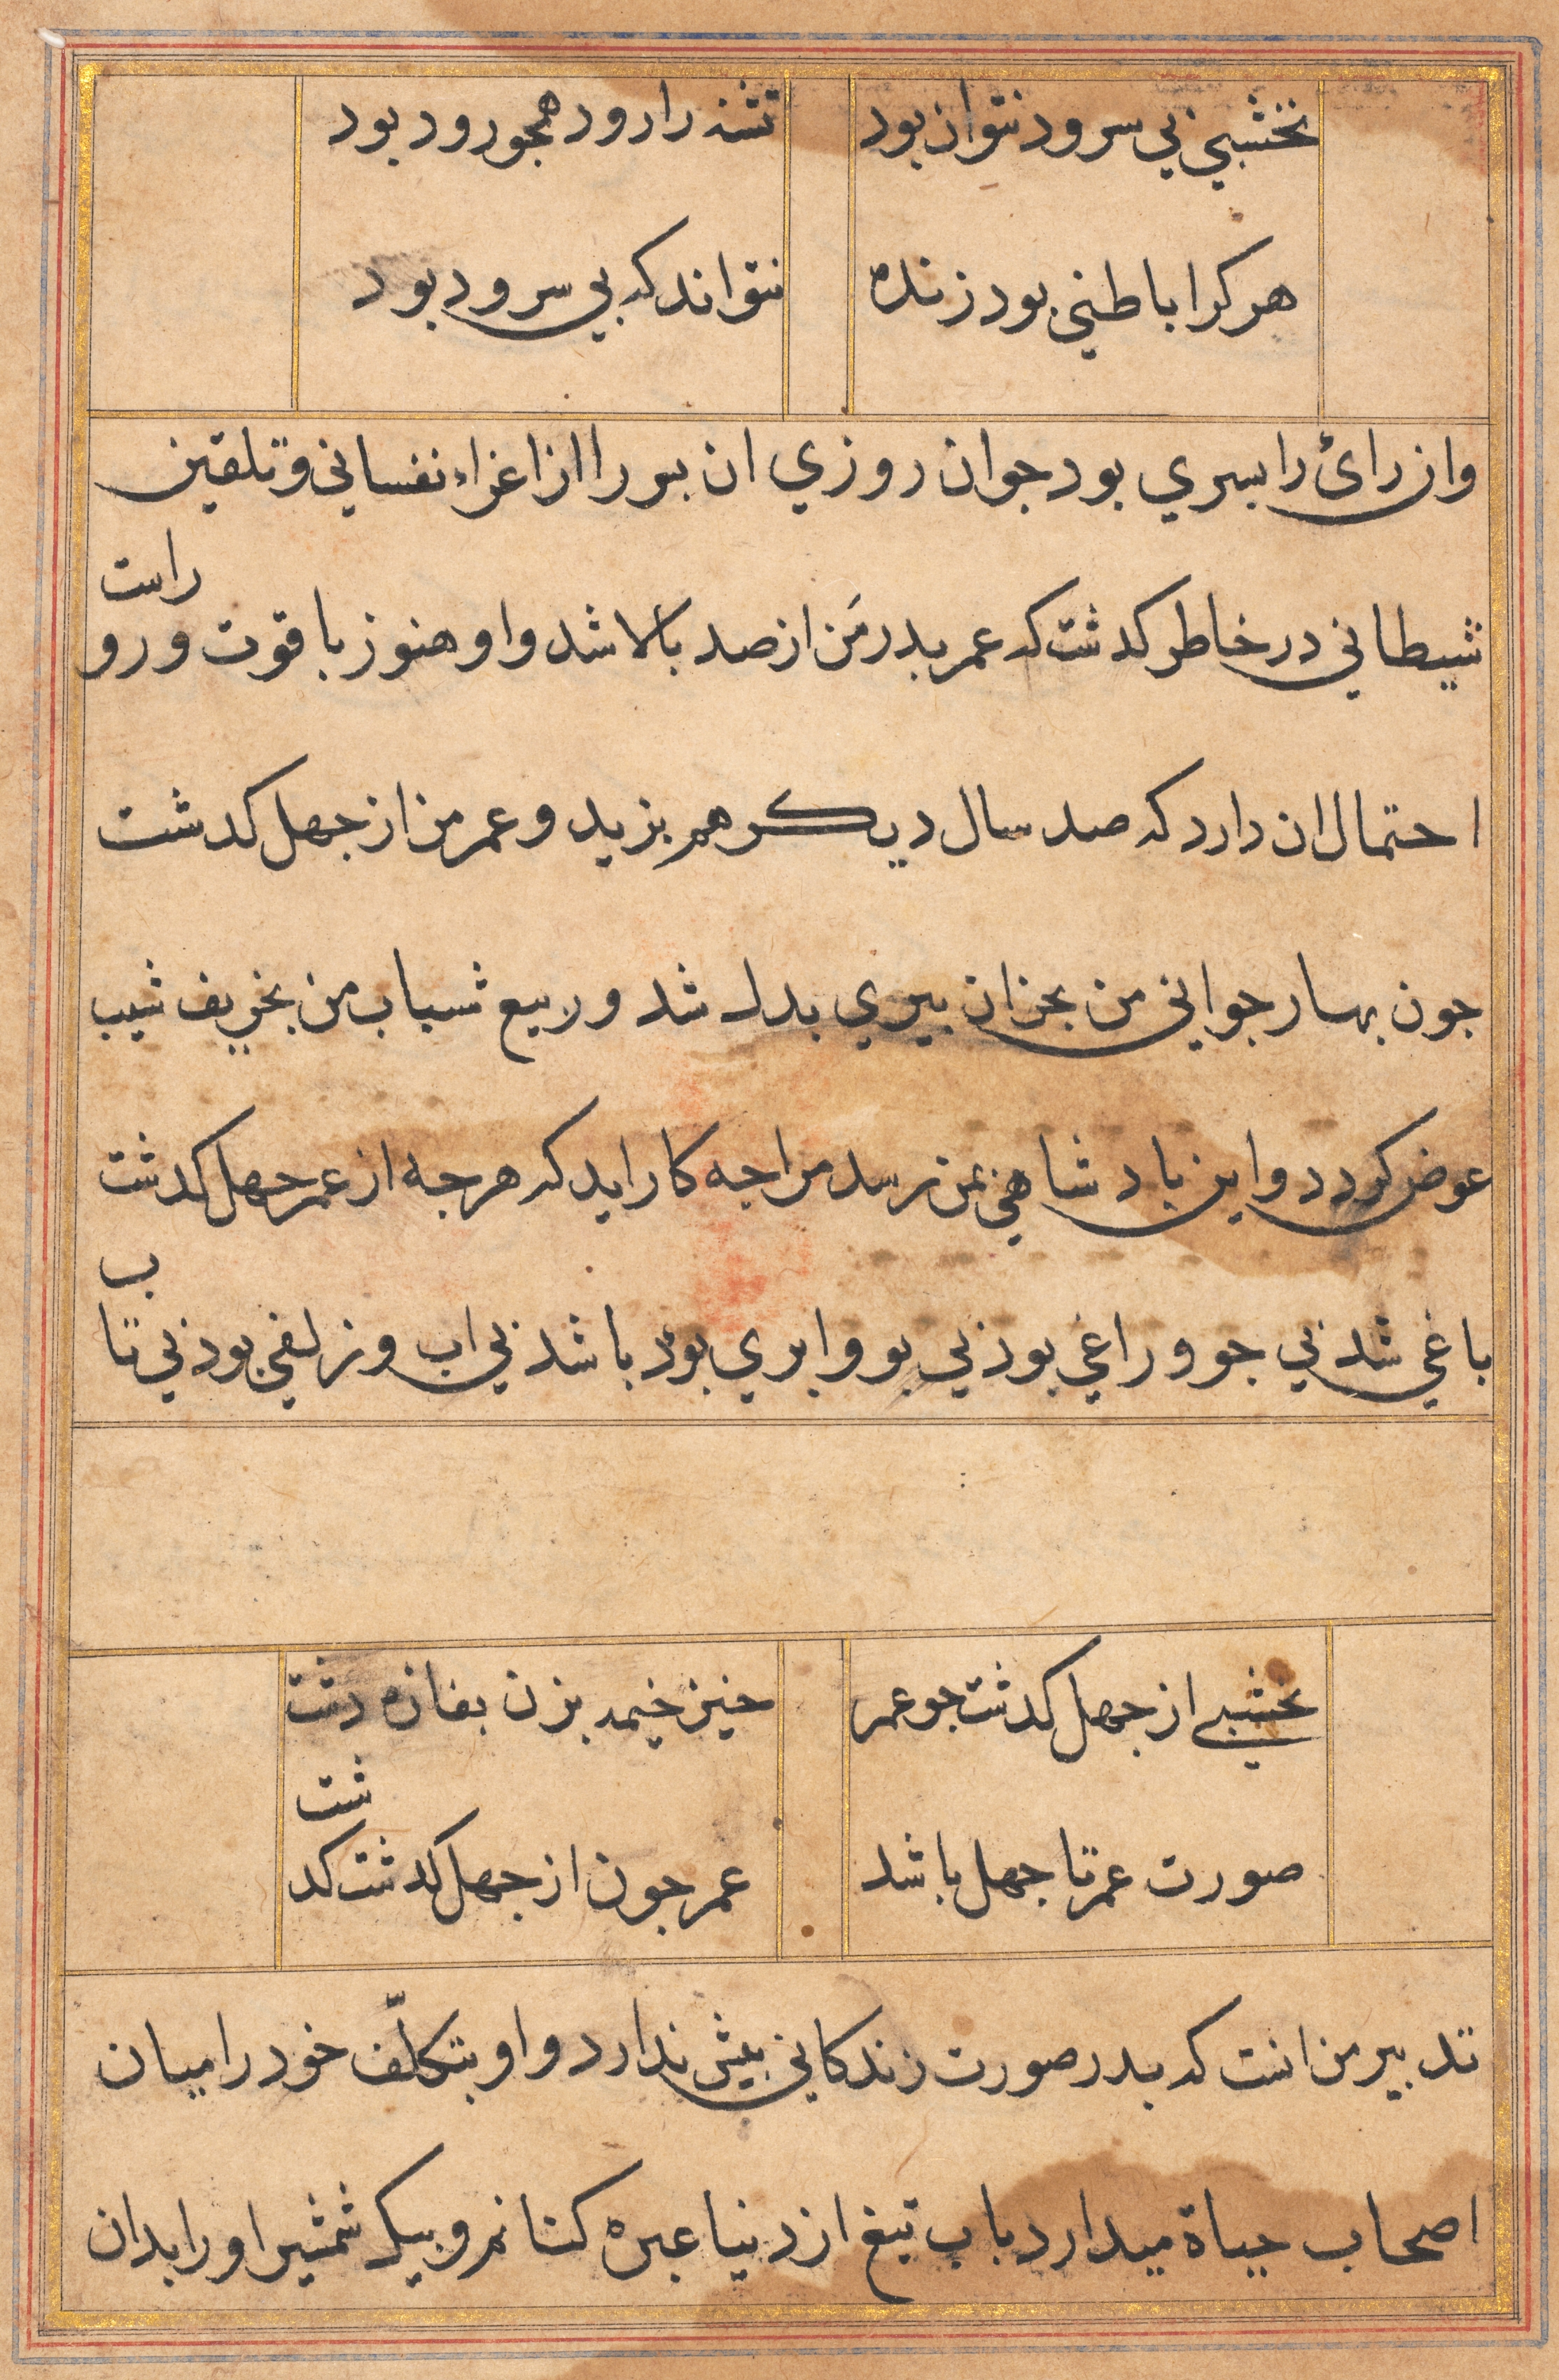 نخشبی بی سرود نتوان بود تشنه را رود همجو رود بود
هر کرا باطنی بود زنده نتواند که بی سرود بود
وان رای را بسری بود جوان روزی ان بسر را از اغراء نفسانی و تلقین
شیطانی در خاطر کدشت که عمر بدر من از صد بالا شد و او هنوز با قوت و رو راست
احتمال ان دارد که صد سال دیکر هم بزید و عمر من از جهل کدشت
جون بهار جوانی من بخزان بیری بدل شد و ربیع شباب من بخریف شیب
عوض کردد و این بادشاهی بمن رسد مرا جه کار اید که هرجه از عمر جهل کدشت
باغی شد بی جو و راغی بود بی بو و ابری بود باشد بی اب و زلفی بود بی تاب
نخشبی از جهل کدشت جو عمر خیز خیمه بزن بفازه دشت
صورت عمر تا جهل باشد عمر جون از جهل کدشت کدشت
تدبیر من انست که بدر صورت زندکانی بیش ندارد و او بتکلّف خود را میان
اصحاب حیاة میدارد باب تیغ از دنیا عبره کنانم و بیک شمشیر او را بدان